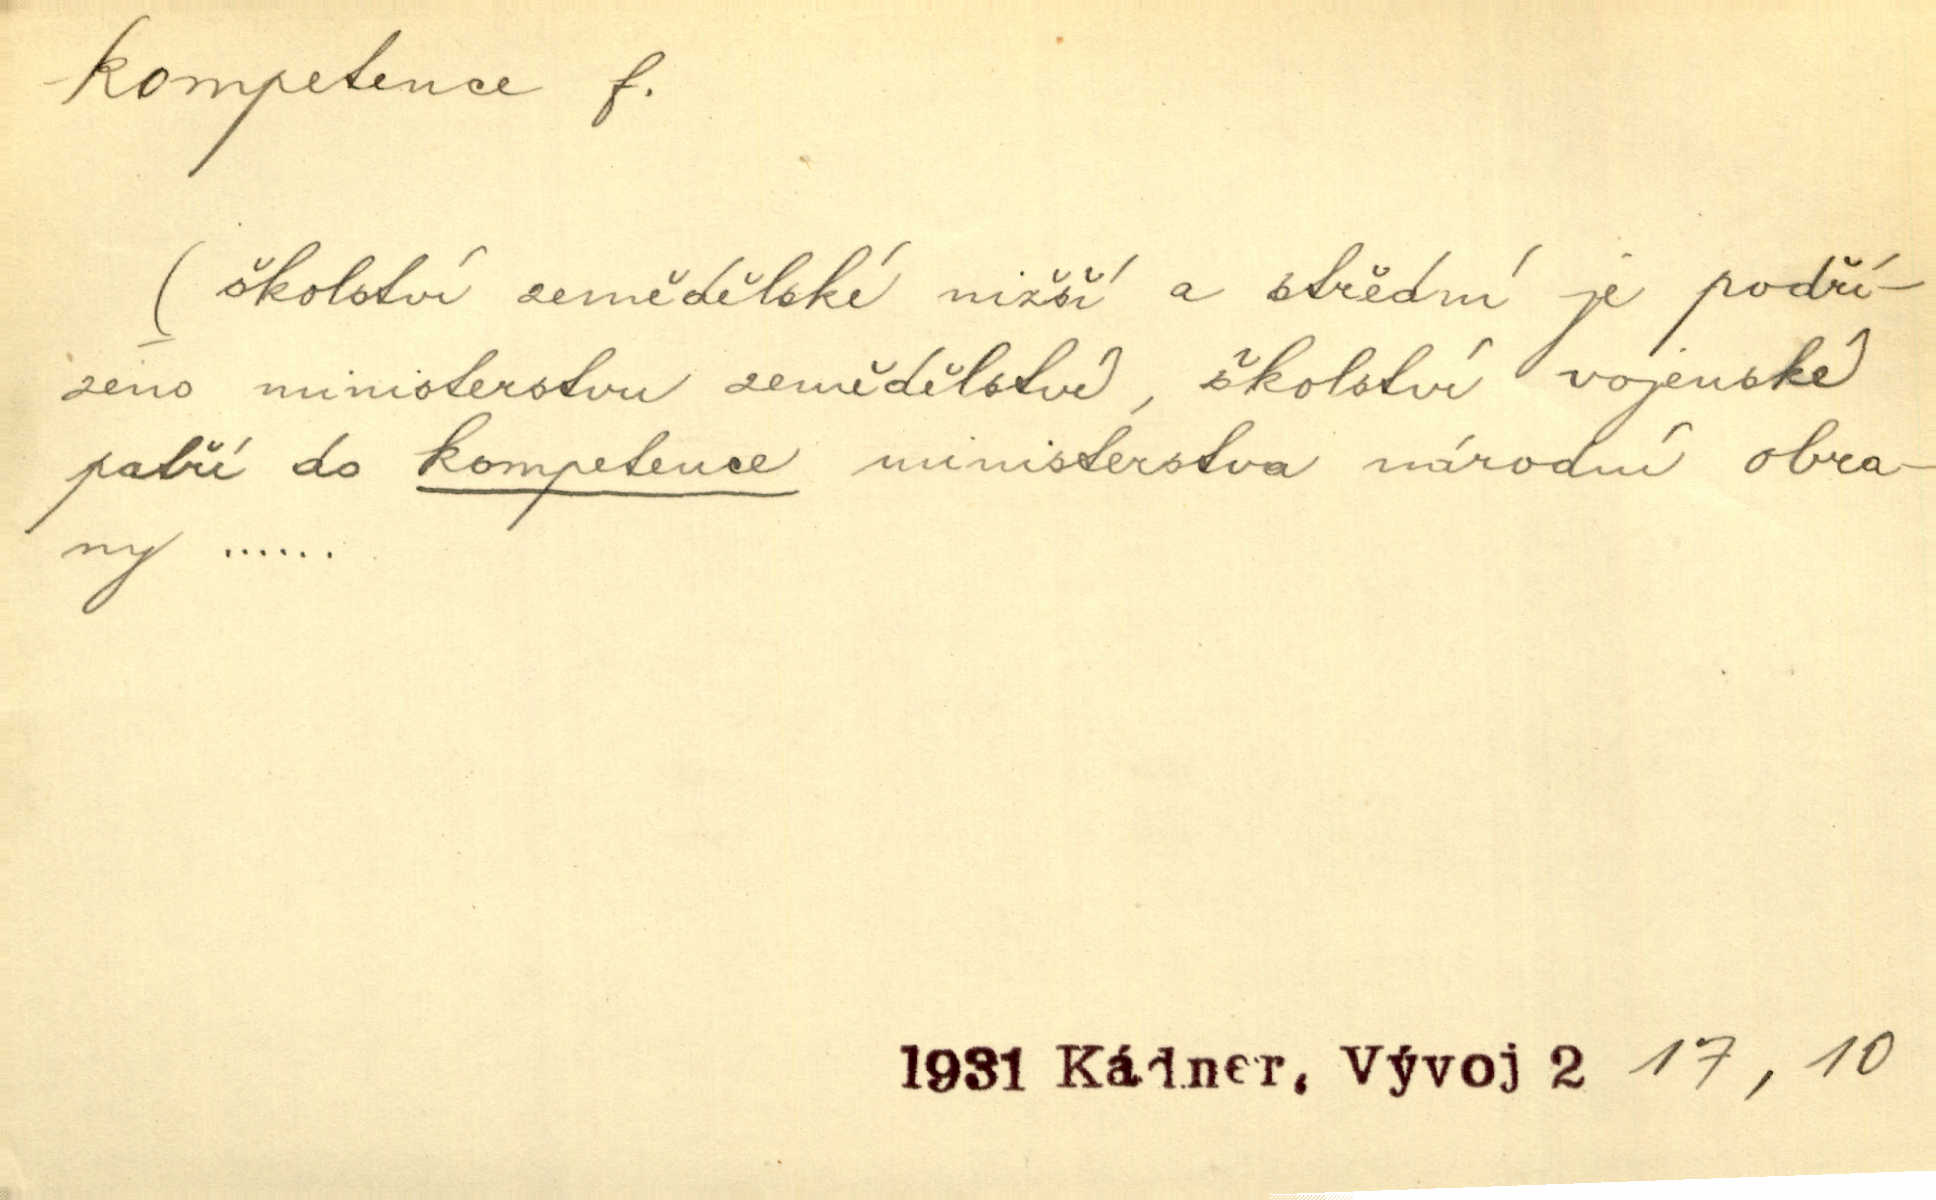 kompetence f.
(školství zemědělské nižší a střední je podří-
zeno ministerstvu zemědělství), školství vojenské
patří do kompetence ministerstva národní obra-
ny ......
1931 Kádner, Vývoj 2 17, 10